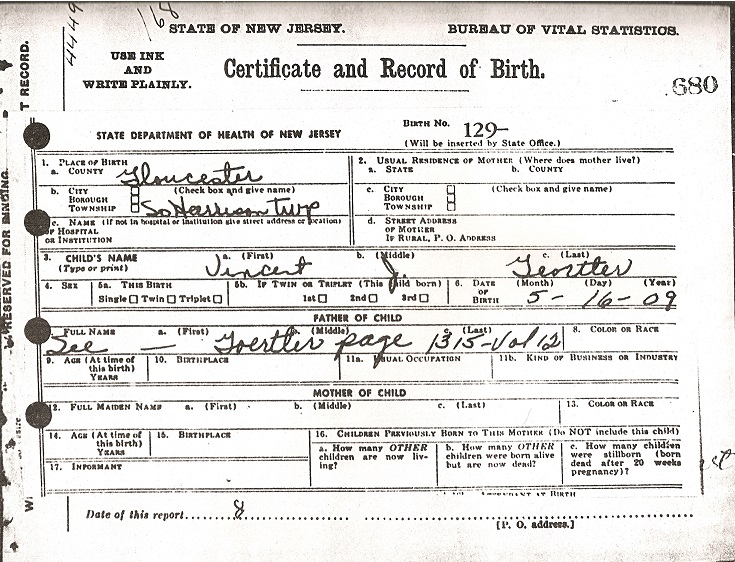 4449
168
STATE OF NEW JERSEY. BUREAU OF VITAL STATISTICS.
USE INK
AND
WRITE PLAINLY.
Certificate and Record of Birth.
680
T RECORD.
RESERVED FOR BINDING.
STATE DEPARTMENT OF HEALTH OF NEW JERSEY
BIRTH No. 129-
(Will be inserted by State Office.)
1. PLACE OF BIRTH
a. COUNTY Gloucester
b. CITY (Check box and give name)
BOROUGH
TOWNSHIP So Harrison Twp
c. NAME (If not in hospital or institution give street address or location)
OF HOSPITAL
OR INSTITUTION
2. USUAL RESIDENCE OF MOTHER (Where does mother live?)
a. STATE b. COUNTY
c. CITY (Check box and give name)
BOROUGH
TOWNSHIP
d. STREET ADDRESS
OF MOTHER
IF RURAL, P. O. ADDRESS
3. CHILD'S NAME a. (First) b. (Middle) c. (Last)
(Type or print) Vincent J. Geortler
4. SEX 5a. THIS BIRTH 5b. IF TWIN OR TRIPLET (This child born) 6. DATE (Month) (Day) (Year)
Single Twin Triplet 1st 2nd 3rd OF
BIRTH 5-16-09
FATHER OF CHILD
FULL NAME a. (First) b. (Middle) c. (Last) 8. COLOR OR RACE
See — Goertler page 1315-Vol 12
9. AGE (At time of
this birth)
YEARS
10. BIRTHPLACE 11a. Usual OCCUPATION 11b. KIND OF BUSINESS OR INDUSTRY
MOTHER OF CHILD
12. FULL MAIDEN NAME a. (First) b. (Middle) c. (Last) 13. COLOR OR RACE
14. AGE (At time of
this birth)
YEARS
15. BIRTHPLACE
16. CHILDREN PREVIOUSLY BORN TO THIS MOTHER (Do NOT include this child)
a. How many OTHER
children are now liv-
ing?
b. How many OTHER
children were born alive
but are now dead?
c. How many children
were stillborn (born
dead after 20 weeks
pregnancy)?
17. INFORMANT
ATTENDANT AT BIRTH
Date of this report 8
[P. O. address.]